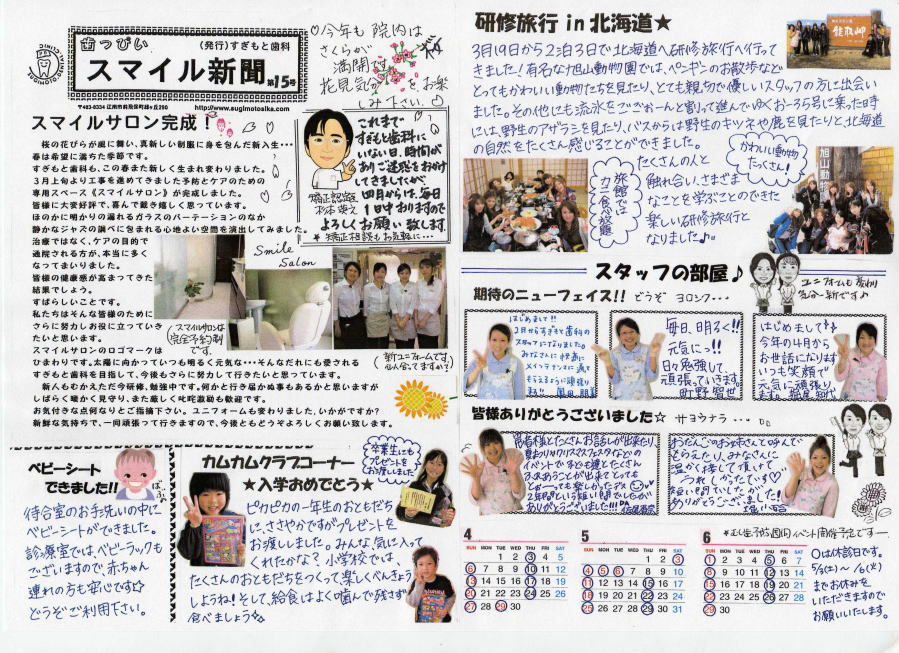 歯っぴい
(発行)すぎもと歯科
スマイル新聞
第15号
http://www.sugimotoalka.com
♡今年も院内は
さくらが
満開です。
花見気分をお楽
しみ下さい。
スマイルサロン完成!
桜の花びらが風に舞い、真新しい制服に身を包んだ新入生・・・
春は希望に満ちた季節です。
すぎもと歯科も、この春また新しく生まれ変わりました。
3月上旬より工事を進めてきました予防とケアのための
専用スペース《スマイルサロン》が完成しました。
皆様に大変好評で、喜んで戴き嬉しく思っています。
ほのかに明かりの漏れるガラスのパーテーションのなか
静かなジャズの調べに包まれる心地よい空間を演出してみました。
治療ではなく、ケアの目的で
通院される方が、本当に多く
なってまいりました。
皆様の健康感が高まってきた
結果でしょう。
すばらしいことです。
私たちはそんな皆様のために
さらに努力しお役に立っていき
たいと思います。
スマイルサロンのロゴマークは
ひまわりです。太陽に向かっていつも明るく元気な・・・そんなだれにも愛される
すぎもと歯科を目指して、今後もさらに努力して行きたいと思っています。
新人もむかえただ今研修、勉強中です。何かと行き届かぬ事もあるかと思いますが
しばらく暖かく見守り、また厳しく叱咤激励も歓迎です。
お気付きな点何なりとご指摘下さい。ユニフォームも変わりました、いかがですか?
新鮮な気持ちで、一同頑張って行きますので、今後ともどうぞよろしくお願い致します。
これまで
すぎもと歯科に
いない日、時間が
あり ご迷惑をおかけ
してきましたが
四月からは、毎日
1日中おりますので
よろしくお願い致します。
★矯正相談もお気軽に・・・
矯正認定医
Smile
Salon
スマイルサロンは
完全予約制
です。
新ユニフォームです。
似合ってますか?
ベビーシート
できました!!
待合室のお手洗いの中に
ベビーシートができました。
診療室では、ベビーラックも
ございますので、赤ちゃん
連れの方も安心です☆
どうぞご利用下さい。
カムカムクラブコーナー
★入学おめでとう★
卒業生にも
プレゼントを
お渡ししました
ピカピカの一年生のおともだち
に、ささやかですがプレゼントを
お渡ししました。みんな気に入っ
てくれたかな?小学校では
たくさんのおともだちをつくって楽しくべんきょう
しようね!そして、給食はよく噛んで残さず
食べましょう
研修旅行 in 北海道★
3月19日から2泊3日で北海道へ研修旅行へ行って
きました!有名な旭山動物園では、ペンギンのお散歩など
とってもかわいい動物たちを見たり、とても親切で優しいスタッフの方に出会い
ました。その他にも流氷をごごおーんと割って進んでゆくガリンコ号に乗った時
には、野生のアザラシを見たり、バスからは野生のキツネや鹿を見たりと、北海道
の自然をたくさん感じることができました。
たくさんの人と
触れ合い、さまざま
なことを学ぶことのできた
楽しい研修旅行と
なりました♪
旅館では
カニ食べ放題
かわいい動物
たくさん!
旭山動物
スタッフの部屋♪
ユニフォームも変わり
気分一新です♪
期待のニューフェイス!! どうぞ ヨロシク・・・
はじめまして!!
2月からすぎもと歯科の
スタッフになりました。
みなさんに快適に
メインテナンスに通って
もらえるように頑張り
ます!!
毎日、明るく!!
元気にっ!!
日々勉強して、
頑張っていきます。
町野智世
はじめまして
今年の4月から
お世話になります
いつも笑顔で
元気に頑張り
ます。
皆様ありがとうございました☆ サヨウナラ・・・
患者様とたくさんお話しが出来たり、
夏おりやクリスマスフェスタイなどの
イベントで子ども達とたくさん
ふれあうことが出来てとっても
と〜っても楽しかったデス
2年間という短い間でしたが
ありがとうございました!!!
おだんごのお姉さんと呼んで
もらえたり、みなさんに
温かく接して頂けて
うれしかったです♡
短い間でしたが
ありがとうございました!
★むし歯予防週間イベント開催予定です
4
SUN MON TUE WED THU FRI SAT
1 2 3 4 5
6 7 8 9 10 11 12
13 14 15 16 17 18 19
20 21 22 23 24 25 26
27 28 29 30
5
SUN MON TUE WED THU FRI SAT
1 2 3
4 5 6 7 8 9 10
11 12 13 14 15 16 17
18 19 20 21 22 23 24
25 26 27 28 29 30 31
6
SUN MON TUE WED THU FRI SAT
1 2 3 4 5 6 7
8 9 10 11 12 13 14
15 16 17 18 19 20 21
22 23 24 25 26 27 28
29 30
○は休診日です。
5/3(土)〜/6(火)
までお休みを
いただきますので
お願いいたします。